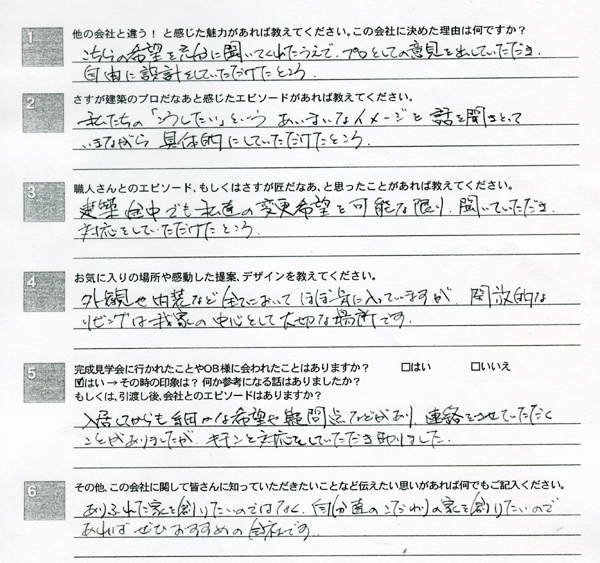 1 他の会社と違う！と感じた魅力があれば教えてください。この会社に決めた理由は何ですか？
こちらの希望を充分に聞いてくれたうえで、プロとしての意見を出していただき、
自由に設計をしていただけたところ。
2 さすが建築のプロだなあと感じたエピソードがあれば教えてください。
私たちの「こうしたい」という あいまいなイメージを 話を聞きとって
いきながら 具体的にしていただけたところ。
3 職人さんとのエピソード、もしくはさすが匠だなあ、と思ったことがあれば教えてください。
建築途中でも私達の変更希望を可能な限り、聞いていただき、
対応をしていただけたところ。
4 お気に入りの場所や感動した提案、デザインを教えてください。
外観や内装など全てにおいてほぼ気に入っていますが、開放的な
リビングは我家の中心として大切な場所です。
5 完成見学会に行かれたことやOB様に会われたことはありますか？ □はい □いいえ
☑はい→その時の印象は？何か参考になる話はありましたか？
もしくは、引渡し後、会社とのエピソードはありますか？
入居してからも細かな希望や疑問点などがあり、連絡をさせていただく
ことがありましたが、キチンと対応をしていただき助りました。
6 その他、この会社に関して皆さんに知っていただきたいことなど伝えたい思いがあれば何でもご記入ください。
ありふれた家を創りたいのではなく、自分達のこだわりの家を創りたいので
あればぜひおすすめの会社です。